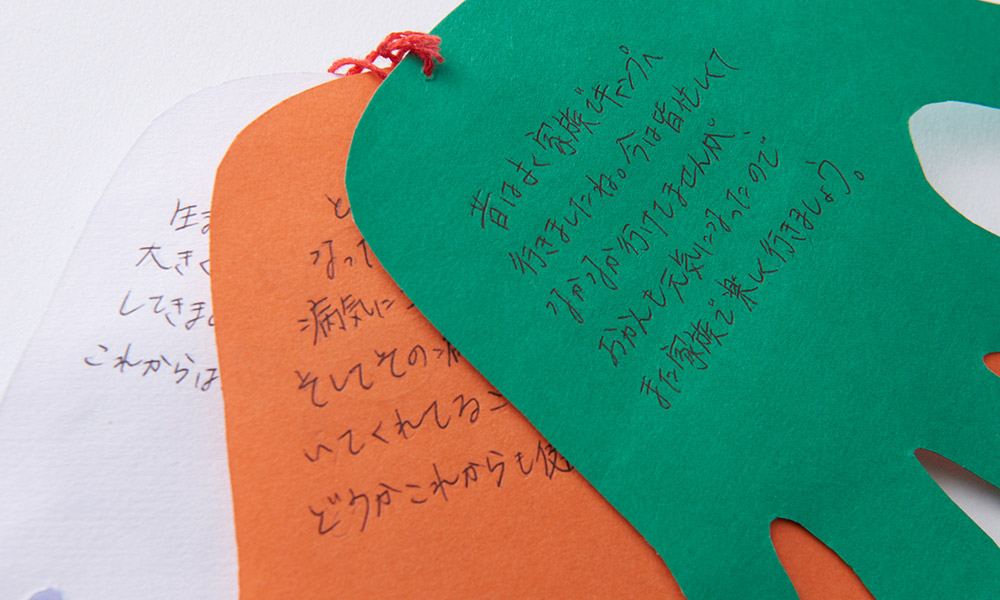 昔はよく家族でキャンプへ
行きましたね。今は皆忙しくて
なかなか行けてませんが、
おかんも元気になったので
また家族で楽しく行きましょう。
と
なって
病気に
そしてその病
いてくれてるこ
どうかこれからも健
生ま
大きく
してきま
これからは